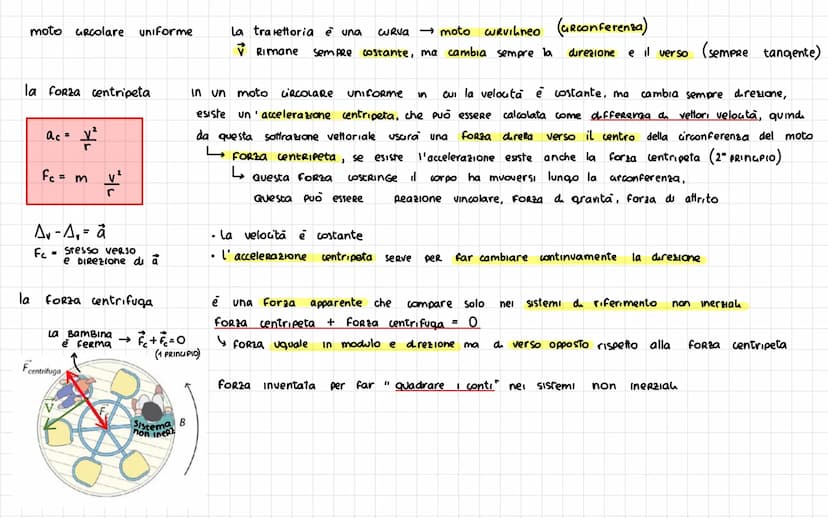 moto circolare uniforme
La traiettoria è una curva → moto curvilineo (circonferenza)
v⃗ Rimane sempre costante, ma cambia sempre la direzione e il verso (sempre tangente)
la forza centripeta
in un moto circolare uniforme in cui la velocità è costante, ma cambia sempre direzione,
esiste un'accelerazione centripeta, che può essere calcolata come differenza di vettori velocità, quindi
da questa sottrazione vettoriale uscirà una forza diretta verso il centro della circonferenza del moto
↳ forza centripeta, se esiste l'accelerazione esiste anche la forza centripeta (2° principio)
↳ questa forza costringe il corpo ha muoversi lungo la circonferenza,
questa può essere reazione vincolare, forza di gravità, forza di attrito
ac = v²/r
Fc = m v²/r
Δv - Δ1 = a⃗
Fc = stesso verso
e direzione di a⃗
· La velocità è costante
· L'accelerazione centripeta serve per far cambiare continuamente la direzione
la forza centrifuga
è una forza apparente che compare solo nei sistemi di riferimento non inerziali
forza centripeta + forza centrifuga = 0
↳ forza uguale in modulo e direzione ma di verso opposto rispetto alla forza centripeta
forza inventata per far "quadrare i conti" nei sistemi non inerziali
La bambina
è ferma → F⃗c + F⃗c = 0
(1 principio)
F⃗centrifuga
V⃗
F⃗
Sistema
non inerz
B